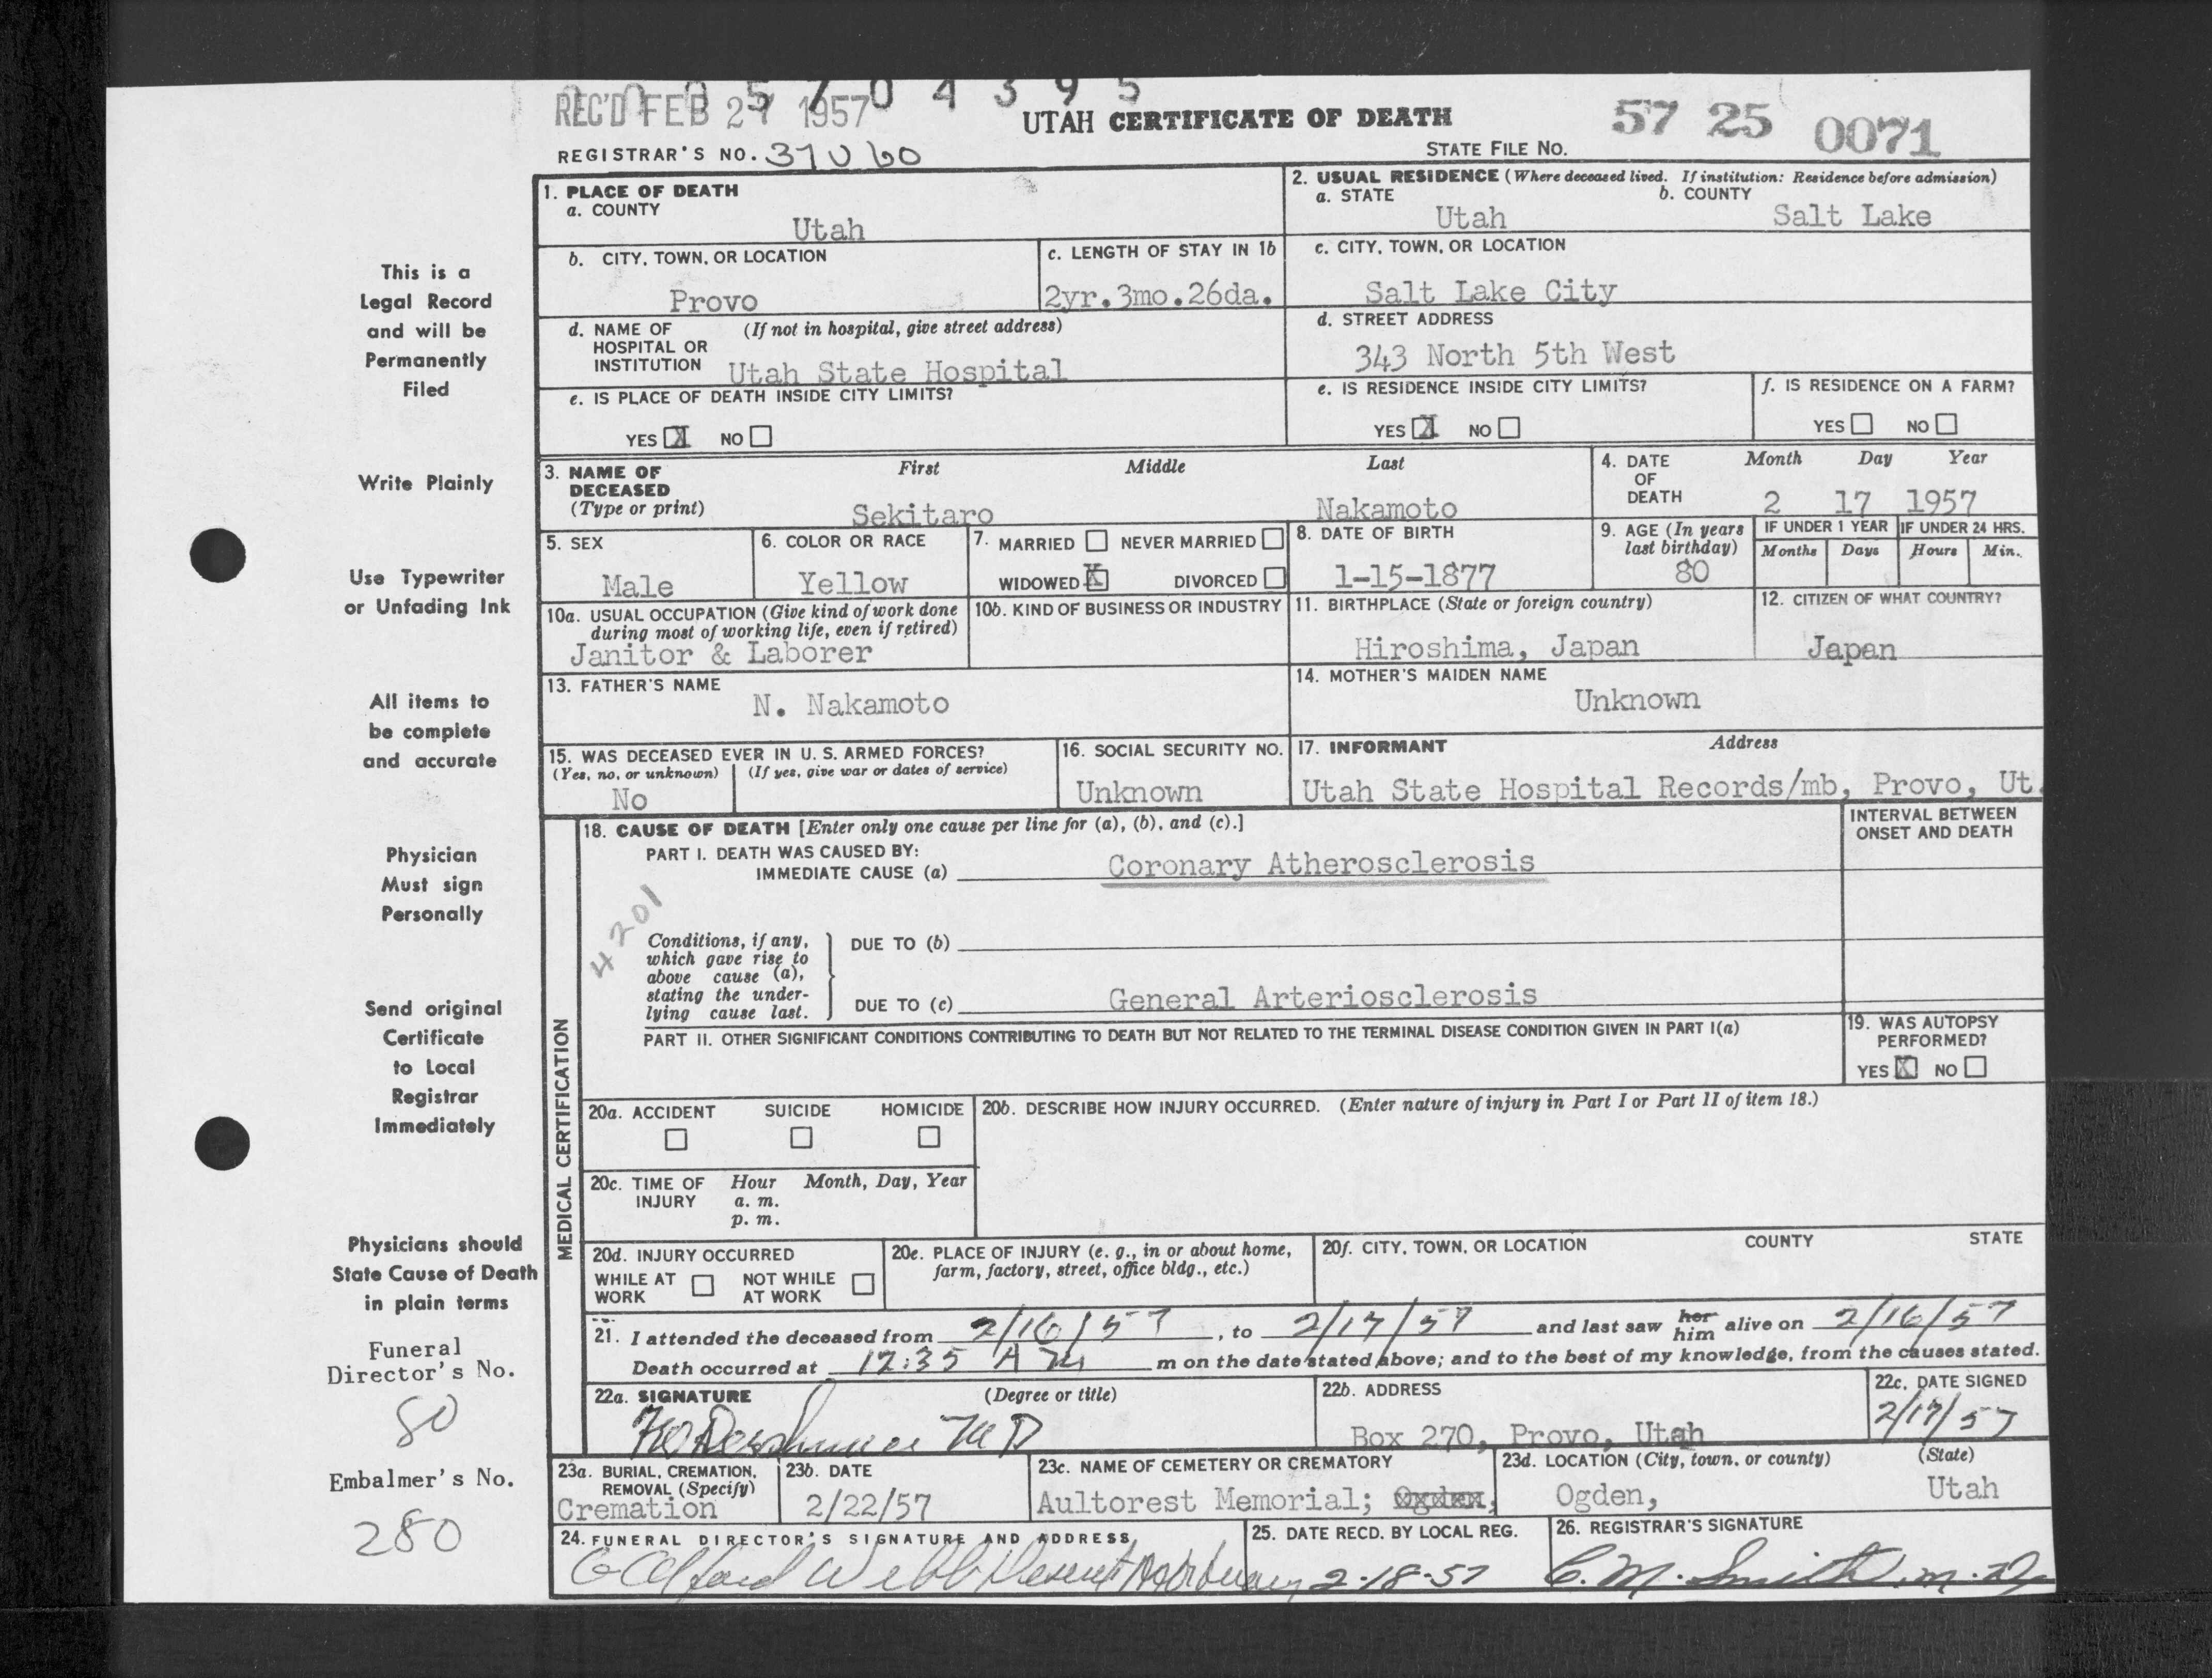 5 7 0 4 3 9 5
REC'D FEB 27 1957
UTAH CERTIFICATE OF DEATH
57 25 0071
REGISTRAR'S NO.
STATE FILE NO.
1. PLACE OF DEATH
a. COUNTY
Utah
2. USUAL RESIDENCE (Where deceased lived. If institution: Residence before admission)
a. STATE
Utah
b. COUNTY
Salt Lake
b. CITY, TOWN, OR LOCATION
Provo
c. LENGTH OF STAY IN 1b
2yr.3mo.26da.
c. CITY, TOWN, OR LOCATION
Salt Lake City
d. NAME OF (If not in hospital, give street address)
HOSPITAL OR
INSTITUTION Utah State Hospital
d. STREET ADDRESS
343 North 5th West
e. IS PLACE OF DEATH INSIDE CITY LIMITS?
YES X NO
e. IS RESIDENCE INSIDE CITY LIMITS?
YES X NO
f. IS RESIDENCE ON A FARM?
YES NO
3. NAME OF
DECEASED
(Type or print)
First Middle Last
Sekitaro Nakamoto
4. DATE
OF
DEATH
Month Day Year
2 17 1957
5. SEX
Male
6. COLOR OR RACE
Yellow
7. MARRIED NEVER MARRIED
WIDOWED X DIVORCED
8. DATE OF BIRTH
1-15-1877
9. AGE (In years
last birthday)
80
IF UNDER 1 YEAR
Months Days
IF UNDER 24 HRS.
Hours Min.
10a. USUAL OCCUPATION (Give kind of work done
during most of working life, even if retired)
Janitor & Laborer
10b. KIND OF BUSINESS OR INDUSTRY
11. BIRTHPLACE (State or foreign country)
Hiroshima, Japan
12. CITIZEN OF WHAT COUNTRY?
Japan
13. FATHER'S NAME
N. Nakamoto
14. MOTHER'S MAIDEN NAME
Unknown
15. WAS DECEASED EVER IN U. S. ARMED FORCES?
(Yes, no, or unknown) (If yes, give war or dates of service)
No
16. SOCIAL SECURITY NO.
Unknown
17. INFORMANT Address
Utah State Hospital Records/mb, Provo, Ut.
MEDICAL CERTIFICATION
18. CAUSE OF DEATH [Enter only one cause per line for (a), (b), and (c).]
INTERVAL BETWEEN
ONSET AND DEATH
PART I. DEATH WAS CAUSED BY:
IMMEDIATE CAUSE (a) Coronary Atherosclerosis
4201
Conditions, if any,
which gave rise to
above cause (a),
stating the under-
lying cause last.
DUE TO (b)
DUE TO (c) General Arteriosclerosis
PART II. OTHER SIGNIFICANT CONDITIONS CONTRIBUTING TO DEATH BUT NOT RELATED TO THE TERMINAL DISEASE CONDITION GIVEN IN PART I(a)
19. WAS AUTOPSY
PERFORMED?
YES X NO
20a. ACCIDENT SUICIDE HOMICIDE
20b. DESCRIBE HOW INJURY OCCURRED. (Enter nature of injury in Part I or Part II of item 18.)
20c. TIME OF
INJURY
Hour Month, Day, Year
a. m.
p. m.
20d. INJURY OCCURRED
WHILE AT
WORK
NOT WHILE
AT WORK
20e. PLACE OF INJURY (e. g., in or about home,
farm, factory, street, office bldg., etc.)
20f. CITY, TOWN, OR LOCATION COUNTY STATE
21. I attended the deceased from 2/16/57, to 2/17/57 and last saw her him alive on 2/16/57
Death occurred at 12:35 A M m on the date stated above; and to the best of my knowledge, from the causes stated.
22a. SIGNATURE (Degree or title)
MD
22b. ADDRESS
Box 270, Provo, Utah
22c. DATE SIGNED
2/17/57
23a. BURIAL, CREMATION,
REMOVAL (Specify)
Cremation
23b. DATE
2/22/57
23c. NAME OF CEMETERY OR CREMATORY
Aultorest Memorial; Ogden,
23d. LOCATION (City, town, or county) (State)
Ogden, Utah
24. FUNERAL DIRECTOR'S SIGNATURE AND ADDRESS
Webb Deseret Mortuary
25. DATE RECD. BY LOCAL REG.
2-18-57
26. REGISTRAR'S SIGNATURE
C. M. Smith m.D.
This is a
Legal Record
and will be
Permanently
Filed
Write Plainly
Use Typewriter
or Unfading Ink
All items to
be complete
and accurate
Physician
Must sign
Personally
Send original
Certificate
to Local
Registrar
Immediately
Physicians should
State Cause of Death
in plain terms
Funeral
Director's No.
80
Embalmer's No.
280